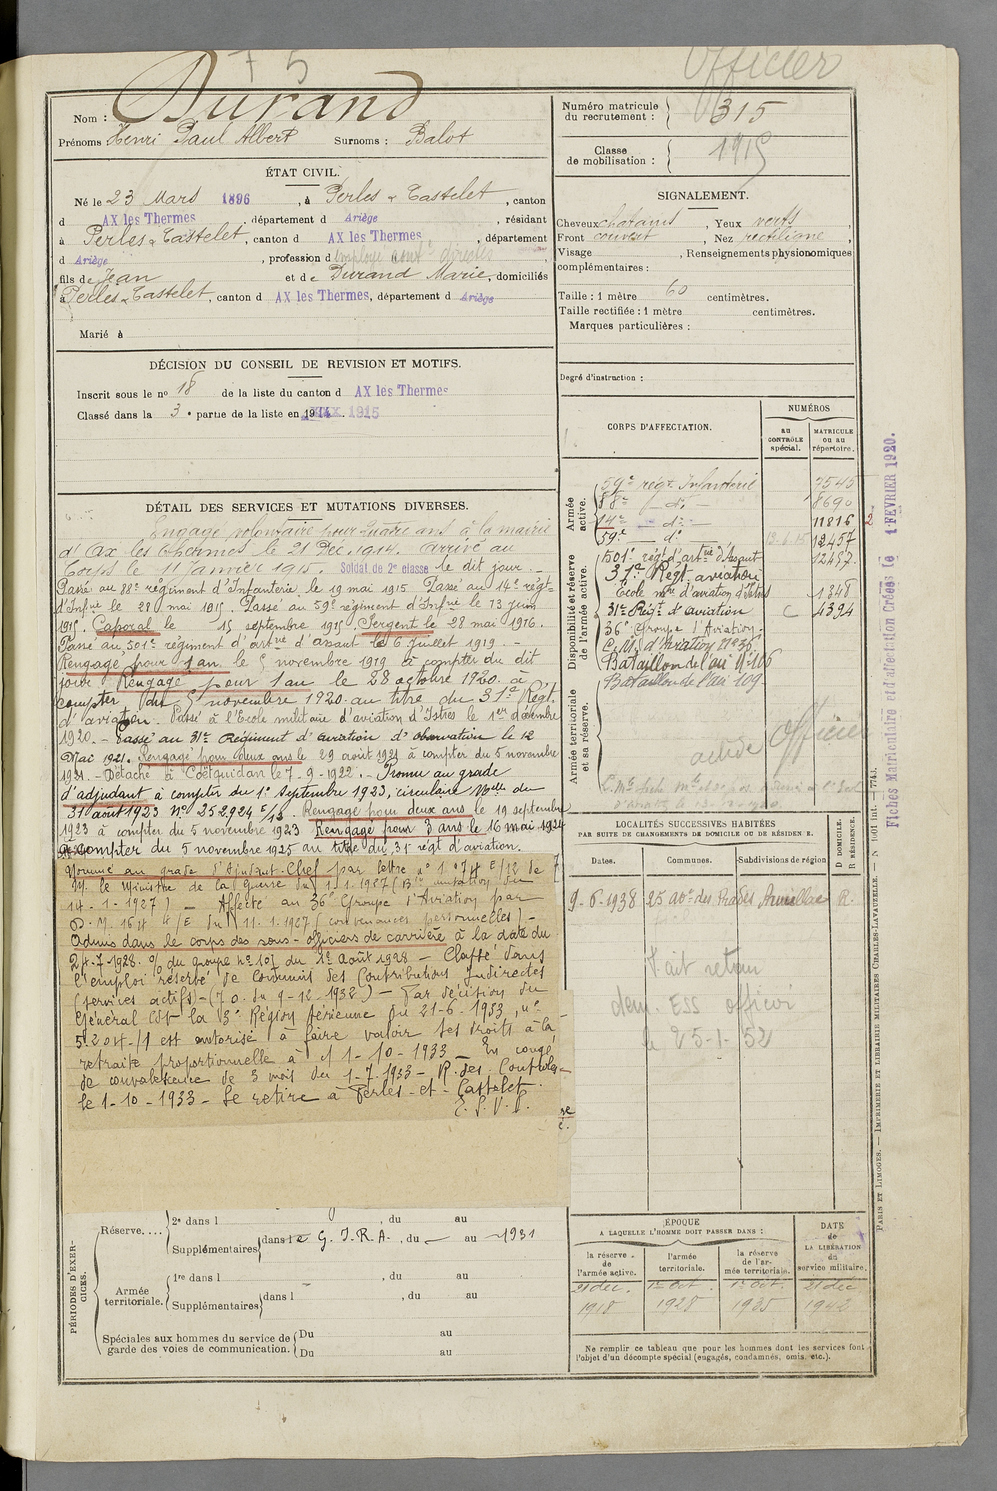 75
Officier
Nom : Durand
Prénoms Henri Paul Albert Surnoms : Balot
ÉTAT CIVIL.
Né le 23 Mars 1896, à Perles & Castelet, canton
d AX les Thermes, département d Ariège, résidant
à Perles & Castelet, canton d AX les Thermes, département
d Ariège, profession d employé cont. directes
fils de Jean et de Durand Marie, domiciliés
à Perles & Castelet, canton d AX les Thermes, département d Ariège
Marié à
DÉCISION DU CONSEIL DE REVISION ET MOTIFS.
Inscrit sous le no 18 de la liste du canton d AX les Thermes
Classé dans la 3e partie de la liste en 1915
DÉTAIL DES SERVICES ET MUTATIONS DIVERSES.
Engagé volontaire pour quatre ans à la mairie
d'Ax les Thermes le 21 Déc. 1914. Arrivé au
Corps le 11 Janvier 1915. Soldat de 2e classe le dit jour.
Passé au 88e régiment d'Infanterie le 19 mai 1915. Passé au 14e régt
d'Infrie le 28 mai 1915. Passé au 59e régiment d'Infie le 13 Juin
1915. Caporal le 15 septembre 1915. Sergent le 28 mai 1916.
Passé au 501e régiment d'artrie d'assaut le 6 juillet 1919. -
Rengagé pour 1 an le 5 novembre 1919 à compter du dit
jour. Rengagé pour 1 an le 28 octobre 1920 à
compter du 5 novembre 1920 au titre du 31e Régt
d'aviation. Passé à l'Ecole militaire d'aviation d'Istres le 1er décembre
1920. - Passé au 31e Régiment d'aviation d'observation le 12
Mai 1921. Rengagé pour deux ans le 29 août 1921 à compter du 5 novembre
1921. - Détaché à Coëtquidan le 7-9-1922. - Promu au grade
d'adjudant à compter du 1er Septembre 1923, circulaire Mlle du
31 août 1923 No 252924 E/13. Rengagé pour deux ans le 19 septembre
1923 à compter du 5 novembre 1923 Rengagé pour 3 ans le 16 mai 1924
à compter du 5 novembre 1925 au titre du 31e régt d'aviation.
Nommé au grade d'Adjudant-Chef par lettre no 1074 E/12 de
M. le Ministre de la Guerre du 1-1-1927 (Bon mutation du
14-1-1927) - Affecté au 36e Groupe d'Aviation par
D. M. 1614 4/E du 11-1-1927 (convenances personnelles) -
Admis dans le corps des sous-officiers de carrière à la date du
24-7-1928. % du groupe no 101 du 1er Août 1928 - Classé dans
l'emploi réservé de Commis des Contributions Indirectes
(services actifs) - (J.O. du 9-12-1932) - Par décision du
Général Cdt la 3e Région Aérienne du 21-6-1933, no
5.204/1 est autorisé à faire valoir ses droits à la
retraite proportionnelle à 1-10-1933 - En congé
de convalescence de 3 mois du 1-7-1933 - R. des Contrôles
le 1-10-1933 - Se retire à Perles-et-Castelet.
E. S. V. P.
PÉRIODES D'EXERCICES.
Réserve....
2e dans l , du au
Supplémentaires dans le G. I. R. A. , du — au 1931
Armée territoriale.
1re dans l , du au
Supplémentaires dans l , du au
Spéciales aux hommes du service de garde des voies de communication.
Du au
Du au
Numéro matricule du recrutement : 315
Classe de mobilisation : 1915
SIGNALEMENT.
Cheveux chatains, Yeux verts
Front couvert, Nez rectiligne,
Visage , Renseignements physionomiques
complémentaires :
Taille : 1 mètre 60 centimètres.
Taille rectifiée : 1 mètre centimètres.
Marques particulières :
Degré d'instruction :
CORPS D'AFFECTATION.
NUMÉROS
au CONTRÔLE spécial.
MATRICULE ou au répertoire.
Armée active.
59e régt Infanterie 7545
88e — do — 8690
14e — do — 11816 2
59e — do 12457
Disponibilité et réserve de l'armée active.
501e régt d'artrie d'Assaut 12487
31e Régt aviation
Ecole mre d'aviation d'Istres 1348
31e Régt d'aviation C 4394
36e Groupe d'Aviation.
C. M. d'Aviation No 36
Bataillon de l'air No 106
Armée territoriale et sa réserve.
Bataillon de l'air 109
Officier
active
LOCALITÉS SUCCESSIVES HABITÉES
PAR SUITE DE CHANGEMENTS DE DOMICILE OU DE RÉSIDENCE.
Dates.
Communes.
Subdivisions de région
D DOMICILE.
R RÉSIDENCE.
9-6-1938 25 Ave des Prades Aurillac R.
Fait retour
dem. ESS officier
le 25-1-52
ÉPOQUE
A LAQUELLE L'HOMME DOIT PASSER DANS :
DATE de LA LIBÉRATION du service militaire.
la réserve de l'armée active.
l'armée territoriale.
la réserve de l'armée territoriale.
21 déc. 1918
1er oct. 1928
1er oct. 1935
21 déc 1942
Ne remplir ce tableau que pour les hommes dont les services font
l'objet d'un décompte spécial (engagés, condamnés, omis, etc.).
Fiches Matriculaire et d'affectation Créées le 1 FEVRIER 1920.
PARIS ET LIMOGES. — IMPRIMERIE ET LIBRAIRIE MILITAIRES CHARLES-LAVAUZELLE. — N° 1001 int. — (774).